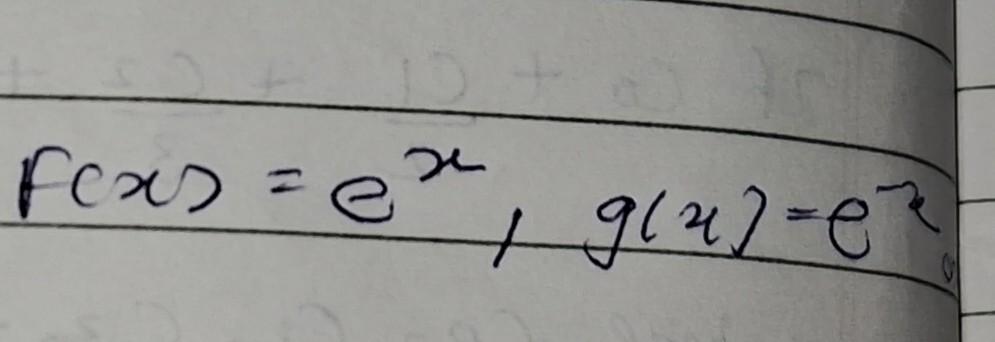 F(x) = e^x, g(x) = e^-x.